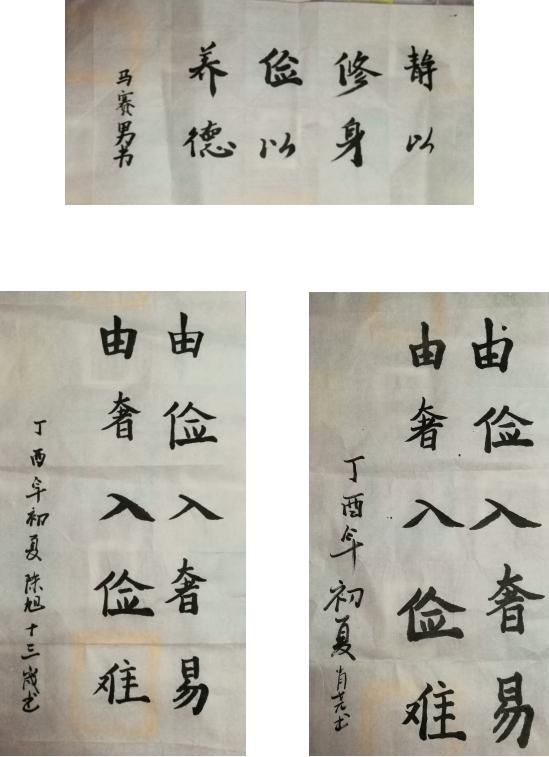 静以
修身
俭以
养德
马赛男书
由俭入奢易
由奢入俭难
丁酉年初夏陈旭十三岁书
由俭入奢易
由奢入俭难
丁酉年初夏肖尧书